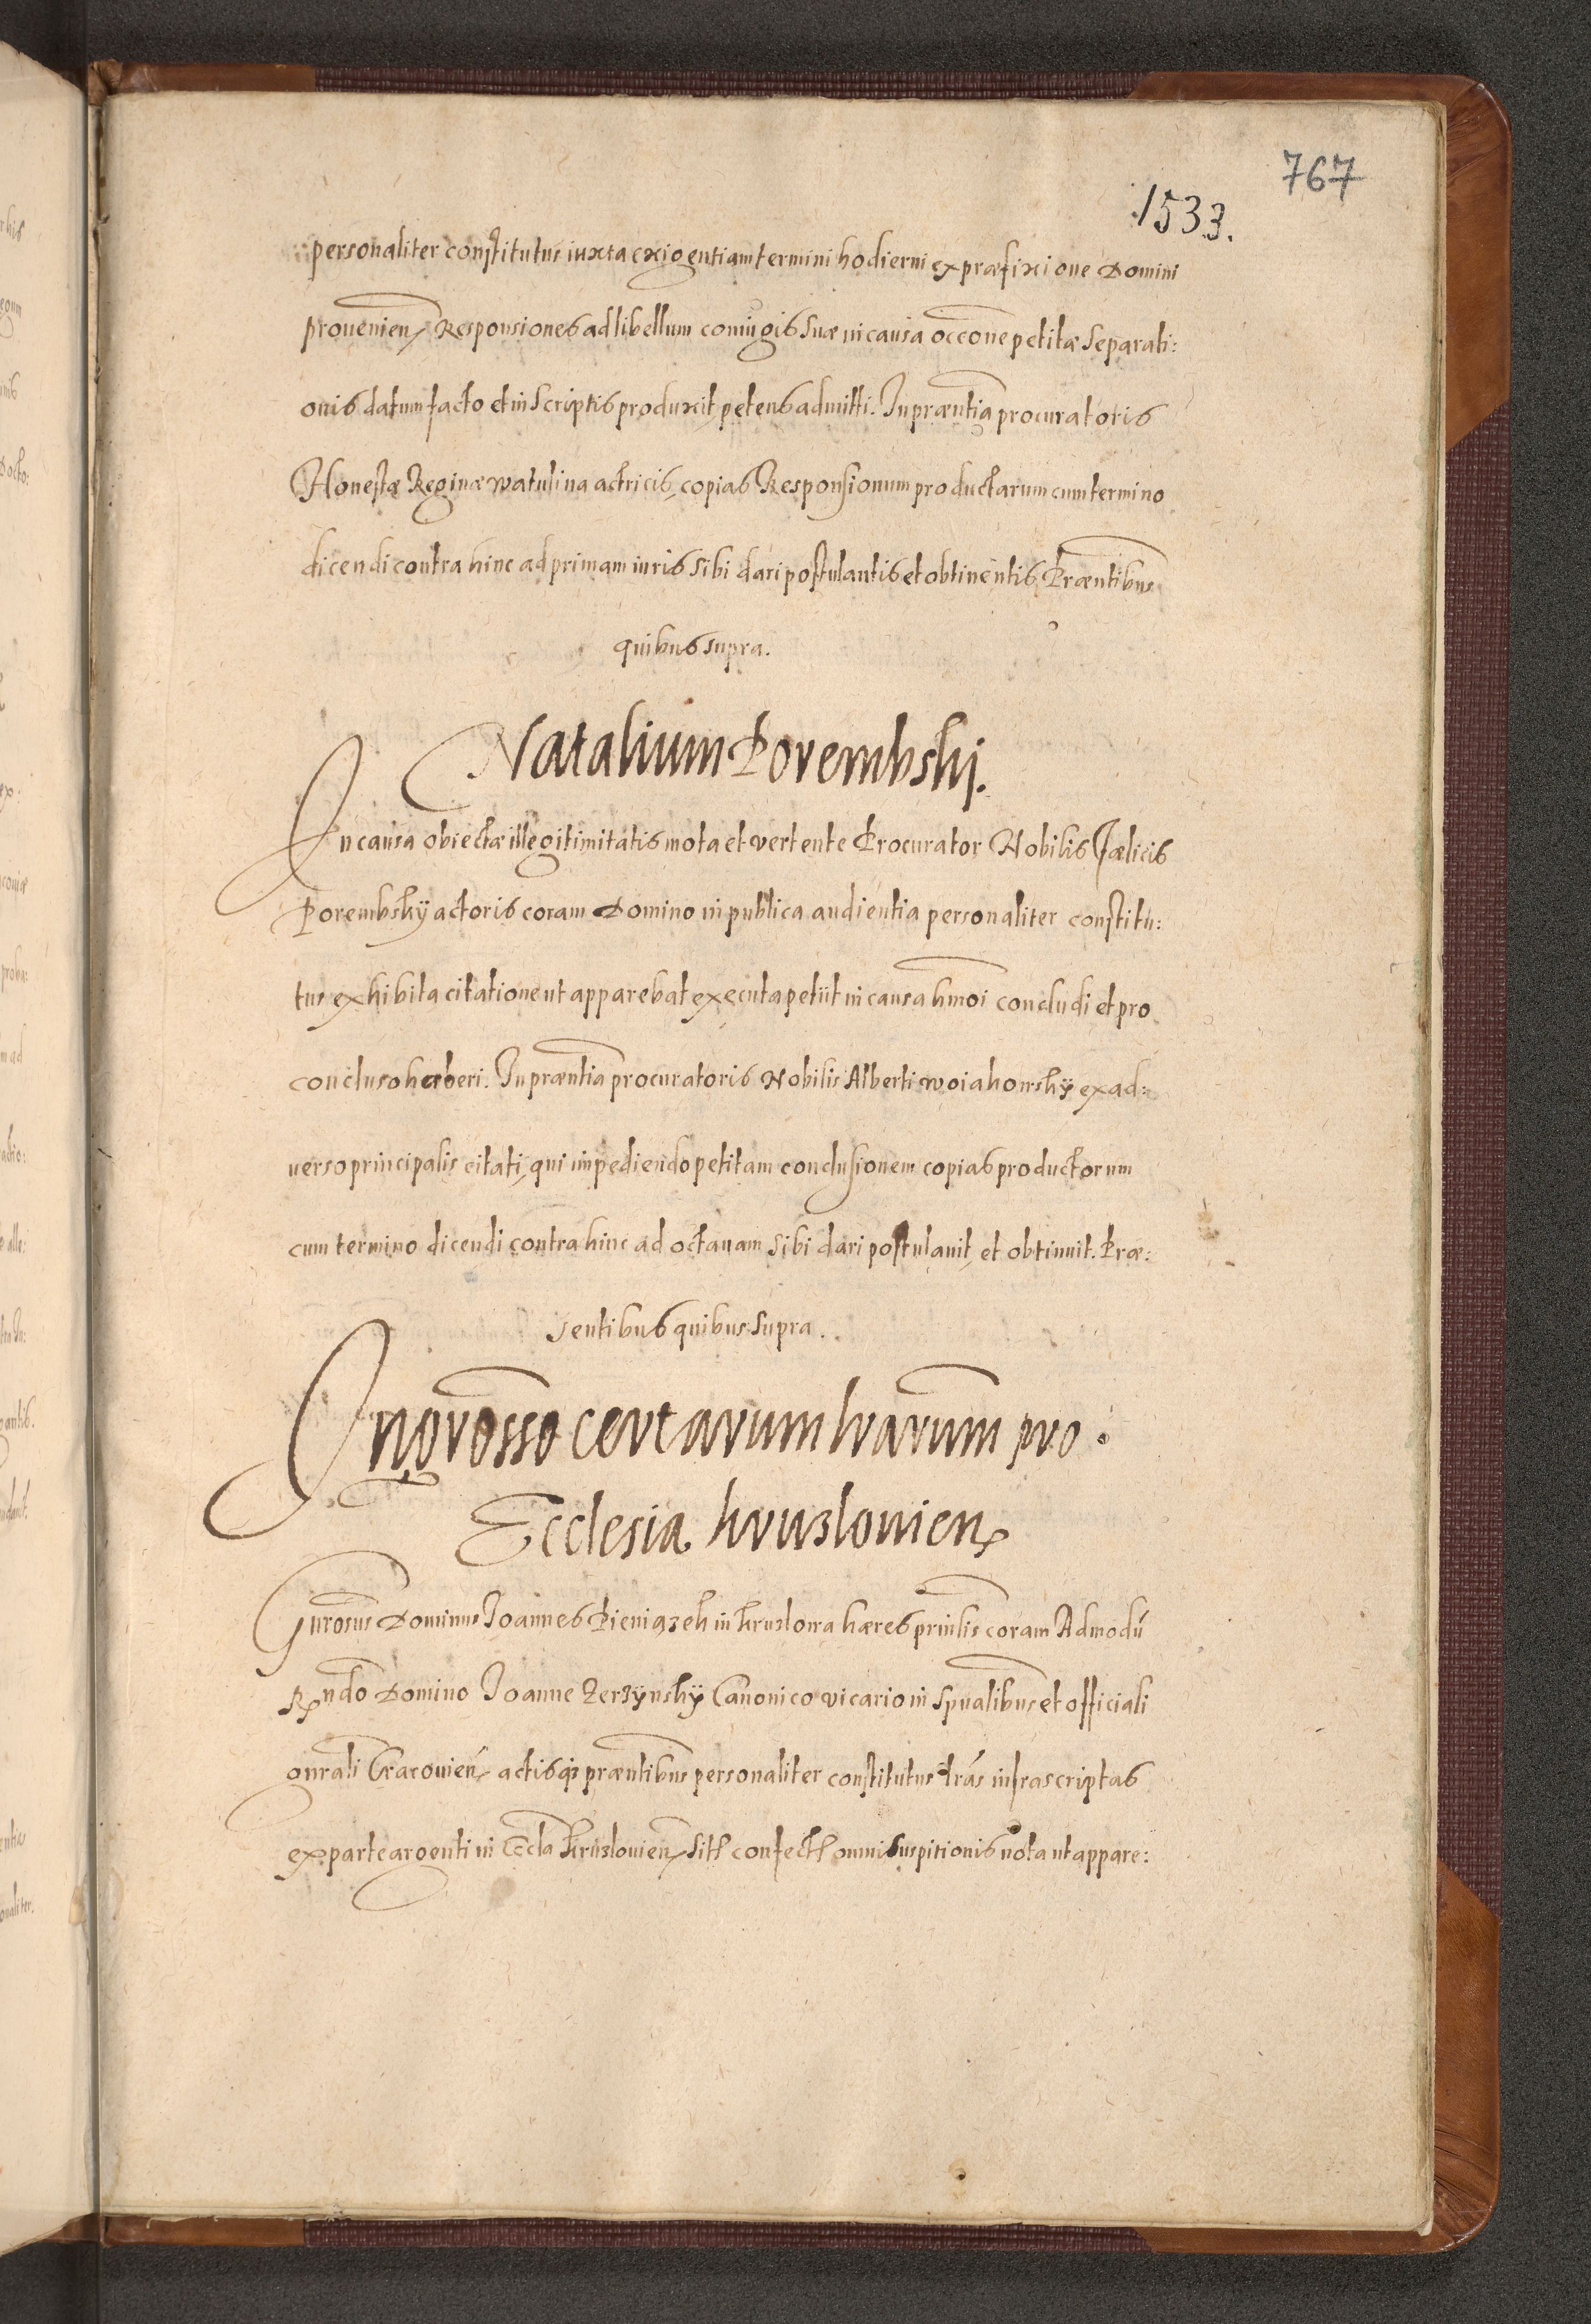 767
1533.
personaliter constitutus iuxta exigentiam termini hodierni ex præfixione Domini
prouenien Responsiones ad libellum coniugis suæ in causa occone petitæ separati:
onis datum facto et in scriptis produxit petens admitti. In præntia procuratoris
Honestæ Reginæ watulina actricis, copias Responsionum productarum cum termino
dicendi contra hinc ad primam iuris sibi dari postulantis et obtinentis. Præntibus
quibus supra.
Natalium Porembskj.
In causa obiectæ illegitimitatis mota et vertente Procurator Nobilis Fælicis
Porembskÿ actoris coram Domino in publica audientia personaliter constitu:
tus exhibita citatione ut apparebat executa petiit in causa hmoi concludi et pro
concluso haberi. In præntia procuratoris Nobilis Alberti woiakowskÿ ex ad:
uerso principalis citati, qui impediendo petitam conclusionem copias productorum
cum termino dicendi contra hinc ad octauam sibi dari postulauit, et obtinuit. Præ:
sentibus quibus supra.
Ingrosso certarum lrarum pro:
Ecclesia kruzlouien
Gnrosus Dominus Joannes Pieniązek in kruzlowa hæres prinlis coram Admodū
Rndo Domino Joanne Zerzÿnskÿ Canonico vicario in spualibus et officiali
gnrali Cracouien actisq3 præntibus personaliter constitutus lras infrascriptas
ex parte argenti in Eccla kruzlouien sitl confectl omni suspitionis nota ut appare: